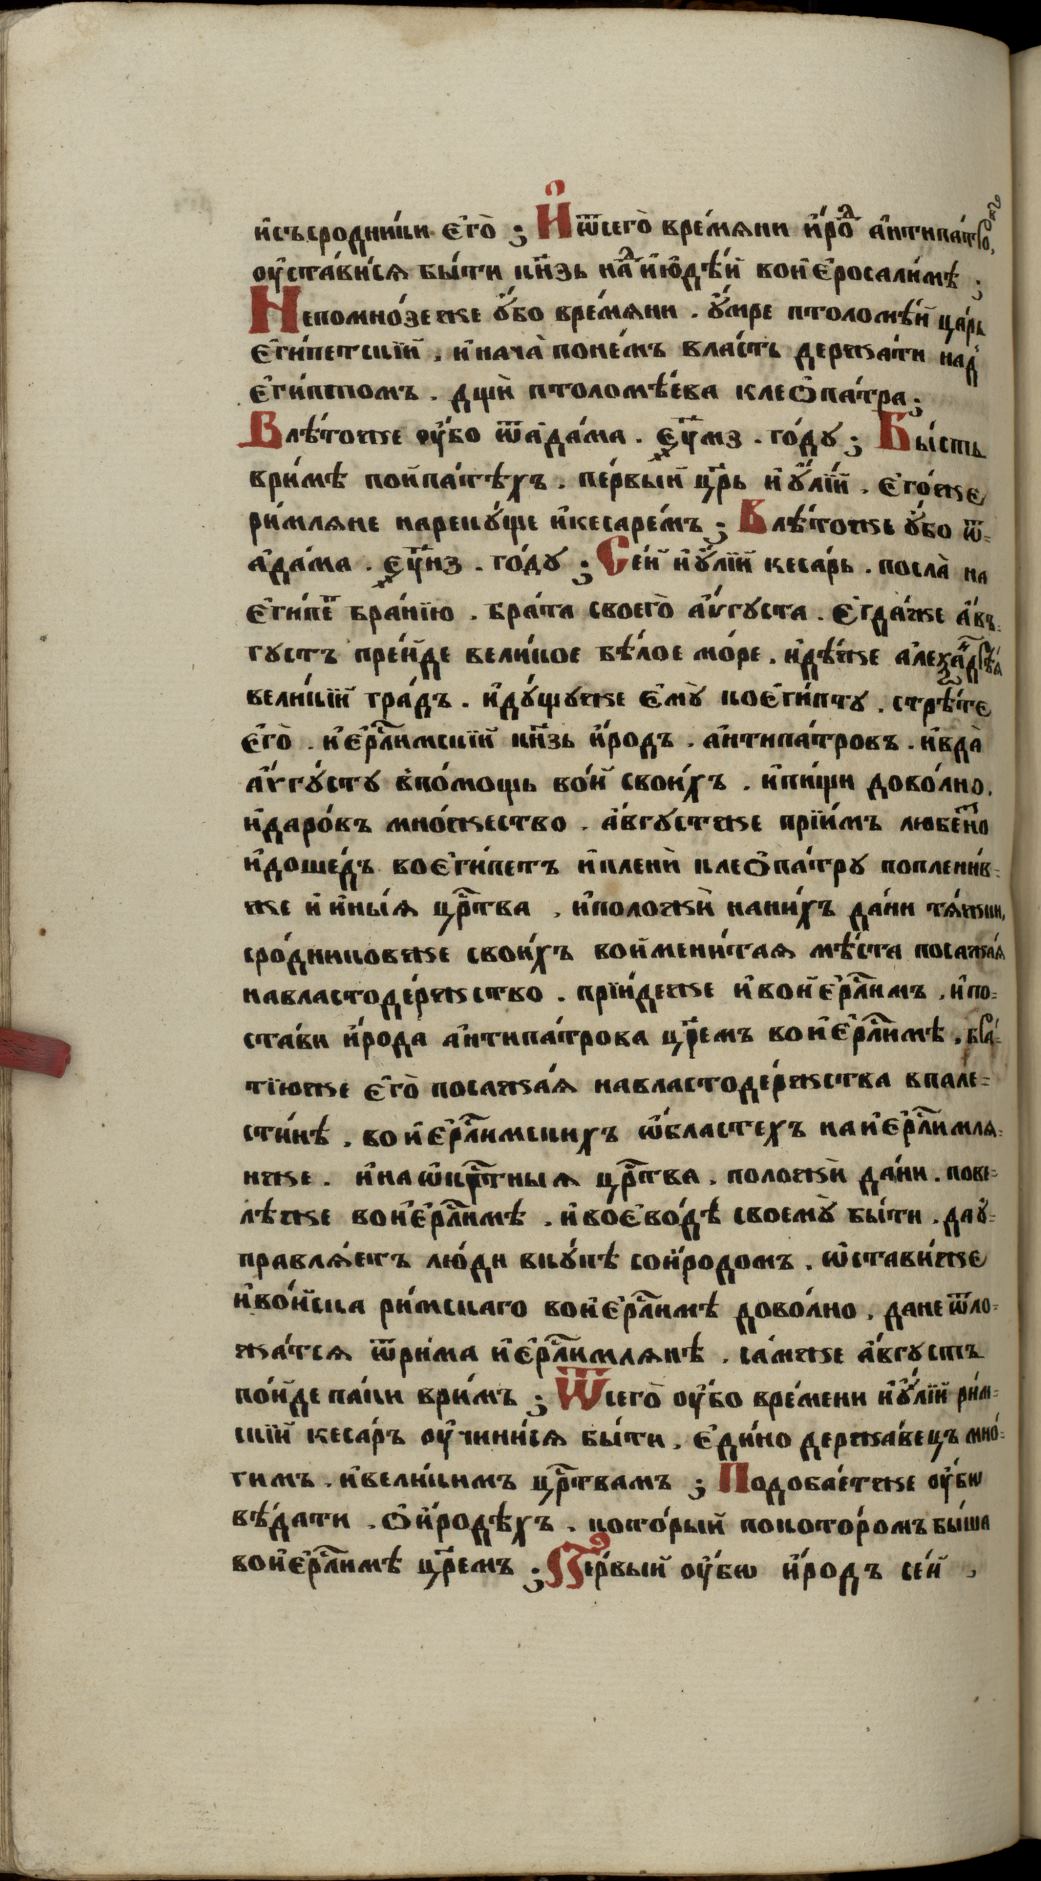 и҆съсродники є҆го̀ ; И҆ ѿсего̀ времѧни и҆́родъ а҆нтипа́тровъ
оу҆ста́висѧ бы́ти кн҃зь на́д̾ и҆ю҆дѣ́и вои҆є҆росали́мѣ ;
Непомно́зеже ᲂу҆́бо вре́мѧни . ᲂу҆́мре птоломѣ́й ца́рь
є҆ги́петскїй . и҆нача̀ поне́мъ вла́сть держа́ти над̾
є҆ги́птомъ . дщѝ птоломѣ́ева клеѻпа́тра ;
Влѣ́тоже оу҆́бо ѿа҆да́ма . ҂є҃умз . го́ду ; Бы́сть
ври́мѣ поипа́тѣхъ . пе́рвый цр҃ь и҆ᲂу҆́лїй . є҆го́же
ри́млѧне нареку́ще и҆кесаре́мъ ; Влѣ́тоже ᲂу҆́бо ѿ-
а҆да́ма . ҂є҃унз . го́ду ; Се́й и҆ᲂу҆́лїй кеса́рь . посла̀ на
є҆ги́пет бра́нїю . бра́та своего̀ а҆́ѵгуста . є҆гда́же а҆́въ-
густъ пре́йде вели́кое бѣ́лое мо́ре . и҆дѣ́же алеѯа́ндрѣѧ
вели́кїй гра́дъ . и҆ду́щуже є҆мꙋ̀ коє҆ги́пту . стрѣ́те
є҆го̀ . и҆є҆рⷭ҇лимскїй кн҃зь и҆́родъ . а҆нтипа́тровъ . и҆вда̀
а҆ѵгу́сту в̾по́мощь во́й свои́хъ . и҆пи́щи дово́лно .
и҆даро́въ мно́жество . а҆́вгустже прїи́мъ любе́зно
и҆доше́дъ воє҆ги́петъ и҆пленѝ клеѻпа́тру попленив-
же и҆ и҆ны́ѧ црⷭ҇тва . и҆положѝ нани́хъ да́ни тѧ́жки ,
сро́дниковже свои́хъ воимени́таѧ мѣ́ста посажа́ѧ
навластоде́ржство . прїи́деже и҆вои҆є҆рⷭ҇лимъ . и҆по-
стави и҆́рода а҆нтипа́трока цр҃емъ вои҆є҆рⷭ҇лимѣ . бра́-
тїюже є҆го̀ посажа́ѧ навластоде́ржства впале-
сти́нѣ . вои҆є҆рⷭ҇лимскихъ ѡ҆́бластехъ наи҆є҆рⷭ҇лимлѧ-
нже . и҆наѡ҆крⷭ҇тныѧ црⷭ҇тва . положѝ да́ни . пове-
лѣ́же вои҆є҆рⷭ҇лимѣ . и҆во́є҆во́дѣ своемꙋ̀ бы́ти . даᲂу҆-
правлѧ́етъ лю́ди вкꙋ́пѣ сои҆́родомъ . ѡ҆стави́же
и҆во́йска ри́мскаго вои҆є҆рⷭ҇лимѣ дово́лно . дане ѿло-
жа́тсѧ ѿри́ма и҆є҆рⷭ҇лимлѧнѣ . са́мже а҆́вгустъ
по́йде паки вримъ ; Ѿсего̀ оу҆́бо вре́мени и҆ᲂу҆́лїй ри́м-
скїй кеса́ръ оу҆чини́сѧ бы́ти . є҆ди́но держа́вецъ мно́-
гимъ . и҆вели́кимъ црⷭ҇твамъ ; Подоба́етже оу҆́бѡ
вѣ́дати . ѻ҆и҆́родѣхъ . кото́рый покото́ромъ бы́ша
вои҆є҆рⷭ҇лимѣ цр҃емъ ; Пе́рвый оу҆́бѡ и҆́родъ се́й ,